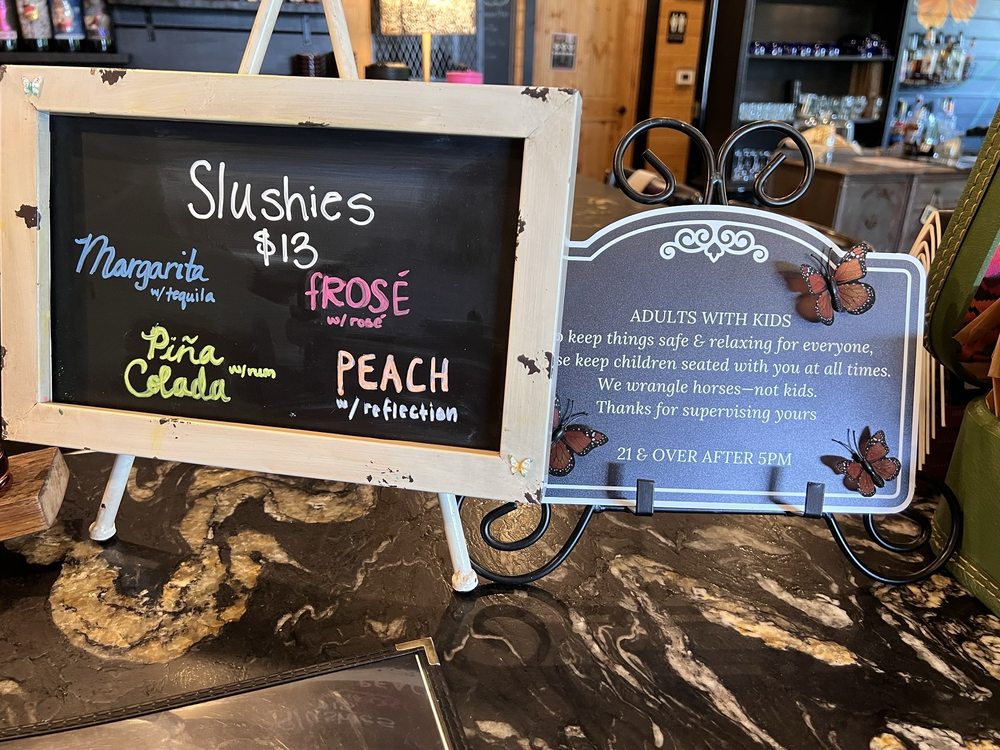 Slushies
$13
Margarita
w/tequila
fROSÉ
w/rosé
Piña
Colada w/rum
PEACH
w/reflection
ADULTS WITH KIDS
keep things safe & relaxing for everyone,
keep children seated with you at all times.
We wrangle horses—not kids.
Thanks for supervising yours
21 & OVER AFTER 5PM